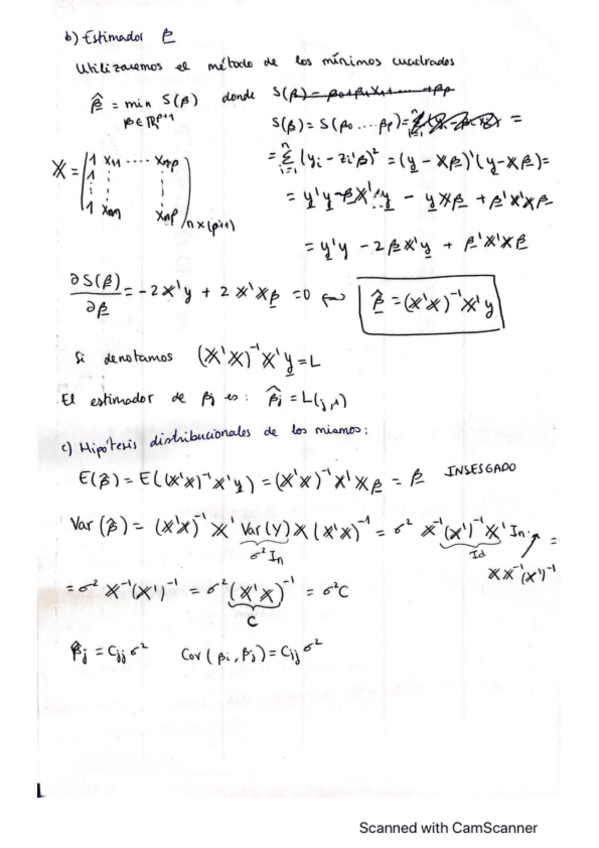 b) Estimador β
Utilizaremos el método de los mínimos cuadrados
β̂ = min S(β) donde S(β) = β0+β1X1+.....+βp
β∈ℝ^(p+1)
S(β) = S(β0 ... βp) = =
X = (1 X11 ..... X1p
1
1 Xn1 Xnp) n x (p+1)
= Σ_{i=1}^{n} (yi - zi'β)² = (y - Xβ)'(y - Xβ) =
= y'y - βX'y - yXβ + β'X'Xβ
= y'y - 2βX'y + β'X'Xβ
∂S(β)/∂β = -2X'y + 2X'Xβ = 0 ↔ β̂ = (X'X)⁻¹X'y
Si denotamos (X'X)⁻¹X'y = L
El estimador de βj es: β̂j = L(j,1)
c) Hipótesis distribucionales de los mismos:
E(β̂) = E((X'X)⁻¹X'y) = (X'X)⁻¹X'Xβ = β INSESGADO
Var(β̂) = (X'X)⁻¹X' Var(Y) X(X'X)⁻¹ = σ² X⁻¹(X')⁻¹X' In. =
σ² In
Id
XX⁻¹(X')⁻¹
= σ² X⁻¹(X')⁻¹ = σ²(X'X)⁻¹ = σ²C
C
β̂j = Cjj σ² Cov(βi, βj) = Cij σ²
Scanned with CamScanner